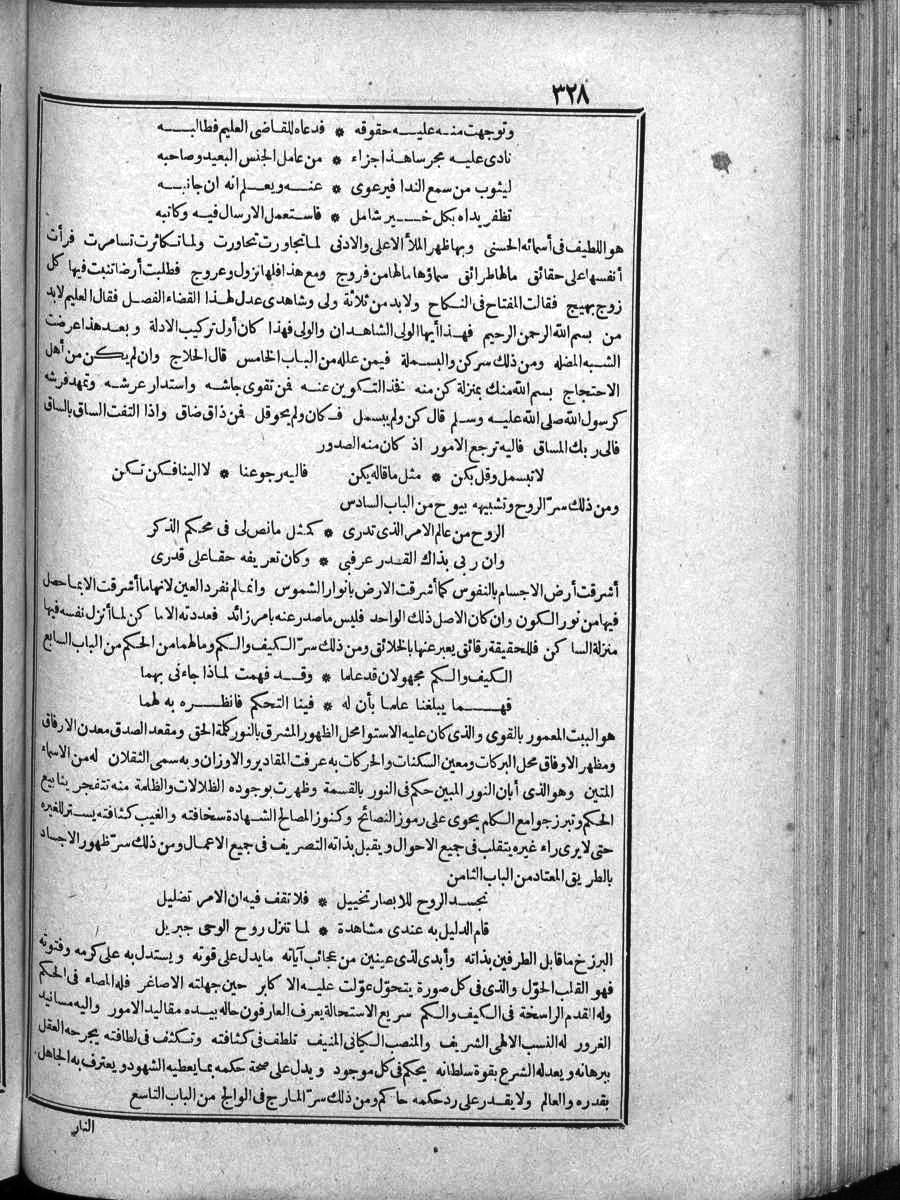 ٣٢٨
وتوجهت منه عليه حقوقه * فدعاه للقاضى العليم فطالبه
نادى عليه مجرسا هذا جزاء * من عامل الجنس البعيد وصاحبه
ليثوب من سمع الندا فيرعوى * عنه ويعلم انه ان جانبه
تظفر يداه بكل خير شامل * فاستعمل الارسال فيه وكاتبه
هو اللطيف فى أسمائه الحسنى وبها ظهر الملأ الاعلى والادنى لما تجاورت تحاورت ولما تكاثرت تسامرت فرأت
أنفسها على حقائق مالها طرائق سماؤها مالها من فروج ومع هذا فلها نزول وعروج فطلبت أرضا تنبت فيها كل
زوج بهيج فقالت المفتاح فى النكاح ولابد من ثلاثة ولى وشاهدى عدل لهذا القضاء الفصل فقال العليم لابد
من بسم الله الرحمن الرحيم فهذا أيها الولى الشاهدان والولى فهذا كان أول تركيب الادلة وبعد هذا عرضت
الشبه المضله ومن ذلك سر كن والبسملة فيمن علله من الباب الخامس قال الحلاج وان لم يكن من أهل
الاحتجاج بسم الله منك بمنزلة كن منه فخذ التكوين عنه فمن تقوى جاشه واستدار عرشه وتمهد فرشه
كرسول الله صلى الله عليه وسلم قال كن ولم يبسمل فكان ولم يحوقل فمن ذاق ضاق واذا التفت الساق بالساق
فالى ربك المساق فاليه ترجع الامور اذ كان منه الصدور
لا تبسمل وقل يكن * مثل ما قاله يكن فاليه رجوعنا * لا الينا فكن تكن
ومن ذلك سرّ الروح وتشبيهه بيوح من الباب السادس
الروح من عالم الامر الذى تدرى * كمثل ما نص لى فى محكم الذكر
وان ربى بذاك القدر عرفنى * وكان تعريفه حقا على قدرى
أشرقت أرض الاجسام بالنفوس كما أشرقت الارض بانوار الشموس وانما لم نفرد العين لانها ما أشرقت الا بما حصل
فيها من نور الكون وان كان الاصل ذلك الواحد فليس ما صدر عنه بامر زائد فعددته الاما كن لما أنزل نفسه فيها
منزلة الساكن فللحقيقة رقائق يعبر عنها بالخلائق ومن ذلك سرّ الكيف والكم ومالهما من الحكم من الباب السابع
الكيف والكم مجهولان قد علما * وقد فهمت لماذا جاءنى بهما
فهما يبلغنا علما بأن له * فينا التحكم فانظره به لهما
هو البيت المعمور بالقوى والذى كان عليه الاستوا محل الظهور المشرق بالنور كلمة الحق ومقعد الصدق معدن الارفاق
ومظهر الاوفاق محل البركات ومعين السكنات والحركات به عرفت المقادير والاوزان وبه سمى الثقلان له من الاسماء
المتين وهو الذى أبان النور المبين حكم فى النور بالقسمة وظهرت بوجوده الظلالات والظلمة منه تتفجر ينابيع
الحكم وتبرز جوامع الكلم يحوى على رموز النصائح وكنوز المصالح الشهادة سخافته والغيب كثافته يستر للغيره
حتى لا يرى راء غيره يتقلب فى جميع الاحوال ويقبل بذاته التصريف فى جميع الاعمال ومن ذلك سرّ ظهور الاجساد
بالطريق المعتاد من الباب الثامن
تجسد الروح للابصار تخييل * فلا تقف فيه ان الامر تضليل
قام الدليل به عندى مشاهدة * لما تنزل روح الوحى جبريل
البرزخ ما قابل الطرفين بذاته وأبدى لذى عينين من عجائب آياته ما يدل على قوته ويستدل به على كرمه وفتوته
فهو القلب الحوّل والذى فى كل صورة يتحوّل عوّلت عليه الا كابر حين جهلته الاصاغر فله المضاء فى الحكم
وله القدم الراسخة فى الكيف والكم سريع الاستحالة يعرف العارفون حاله بيده مقاليد الامور واليه مسانيد
الغرور له النسب الالهى الشريف والمنصب الكيانى المنيف تلطف فى كثافته وتكثف فى لطافته يجرحه العقل
ببرهانه ويعدله الشرع بقوة سلطانه يحكم فى كل موجود ويدل على صحة حكمه بما يعطيه الشهود ويعترف به الجاهل
بقدره والعالم ولا يقدر على رد حكمه حاكم ومن ذلك سرّ المارج فى الوالج من الباب التاسع
النار